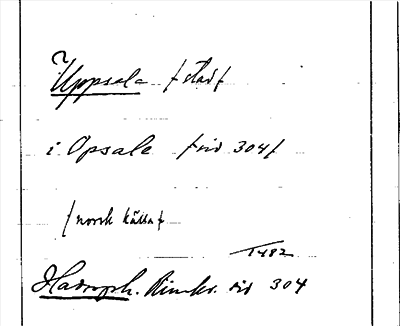 Uppsala /stad/
i Opsale /sid 304/
/norsk källa/
1482
Hadroph. Rimkr. sid 304